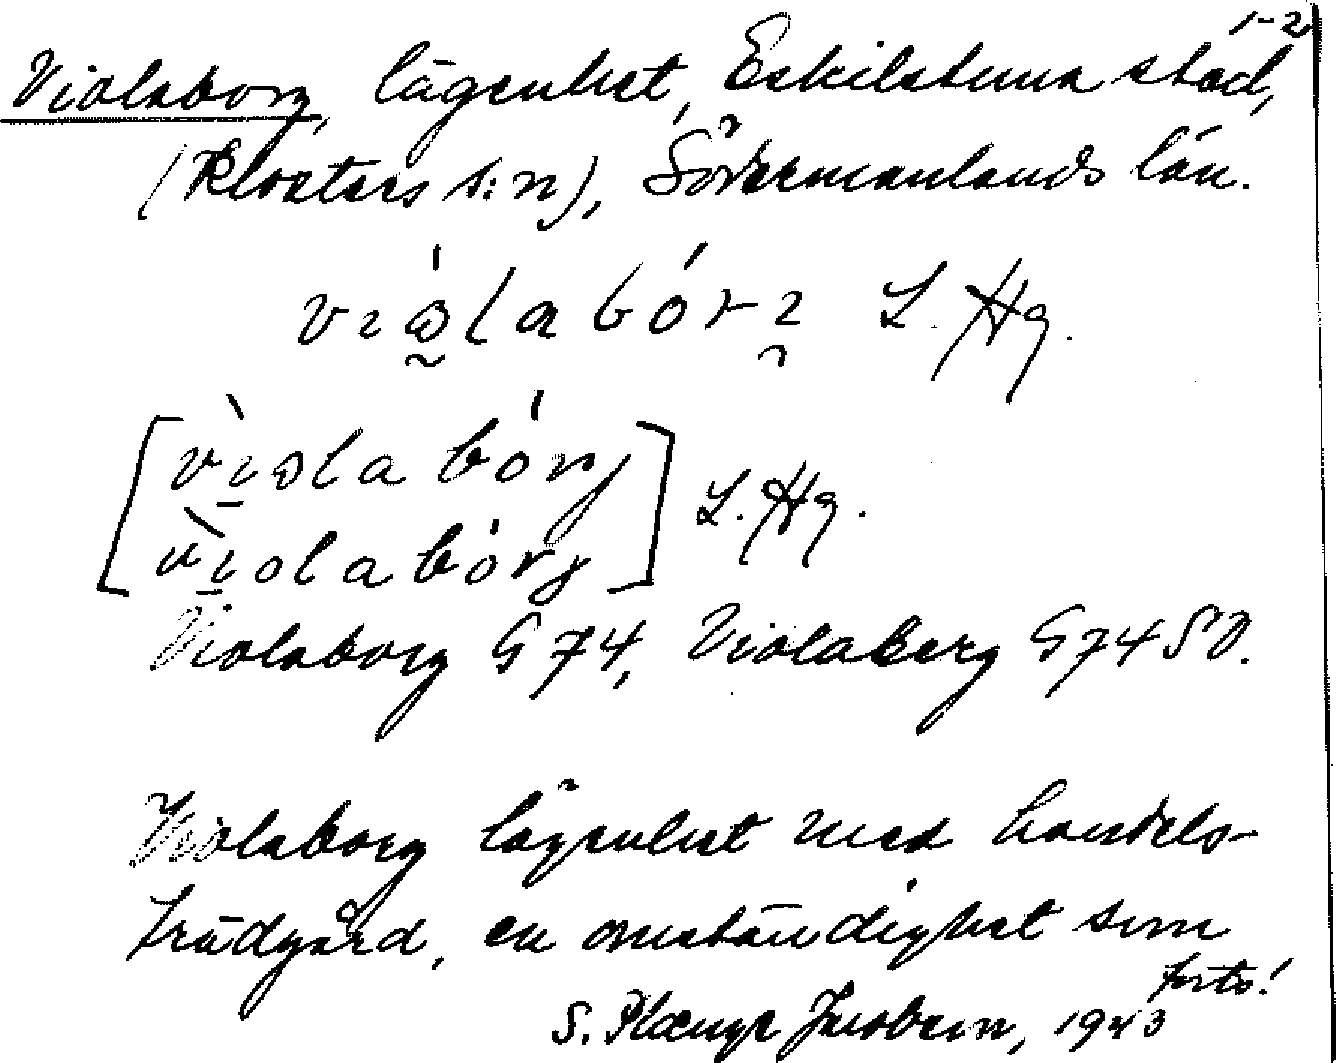 1-2
Violaborg, lägenhet, Eskilstuna stad,
(Klosters s:n), Södermanlands län.
L. Hg.
L. Hg.
Violaborg G 74, Violaberg G 74 SV.
Violaborg lägenhet med handels-
trädgård, en omständighet som
forts!
S. Plænge Jacobson, 1943